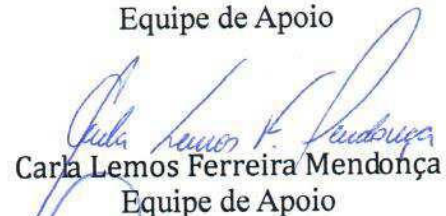 Equipe de Apoio
Carla Lemos F. Mendonça
Carla Lemos Ferreira Mendonça
Equipe de Apoio